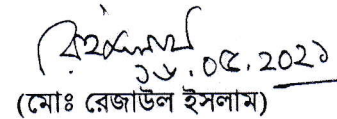 ১৮.০৫.২০২১
(মোঃ রেজাউল ইসলাম)